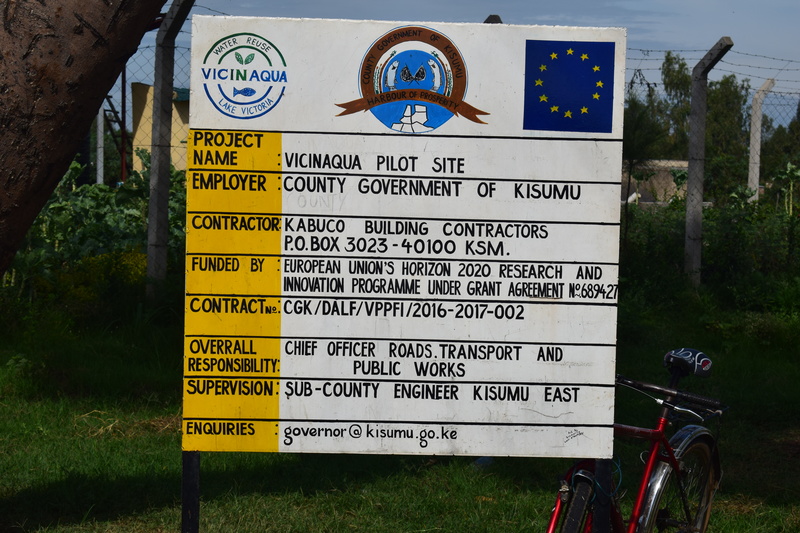 WATER REUSE
VICINAQUA
LAKE VICTORIA
COUNTY GOVERNMENT OF KISUMU
HARBOUR OF PROSPERITY
PROJECT NAME : VICINAQUA PILOT SITE
EMPLOYER : COUNTY GOVERNMENT OF KISUMU
COUNTY
CONTRACTOR: KABUCO BUILDING CONTRACTORS
P.O.BOX 3023-40100 KSM.
FUNDED BY : EUROPEAN UNION'S HORIZON 2020 RESEARCH AND
INNOVATION PROGRAMME UNDER GRANT AGREEMENT No.689427
CONTRACT No.: CGK/DALF/VPPFI/2016-2017-002
OVERRALL RESPONSIBILITY: CHIEF OFFICER ROADS.TRANSPORT AND
PUBLIC WORKS
SUPERVISION: SUB-COUNTY ENGINEER KISUMU EAST
ENQUIRIES : governor@kisumu.go.ke